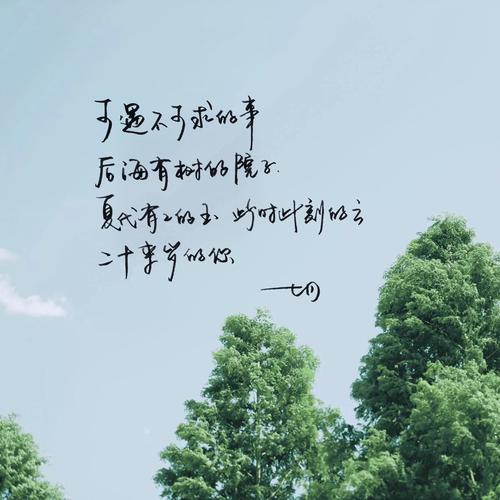 可遇不可求的事
后海有树的院子.
夏代有工的玉、此时此刻的云
二十来岁的你
—七月